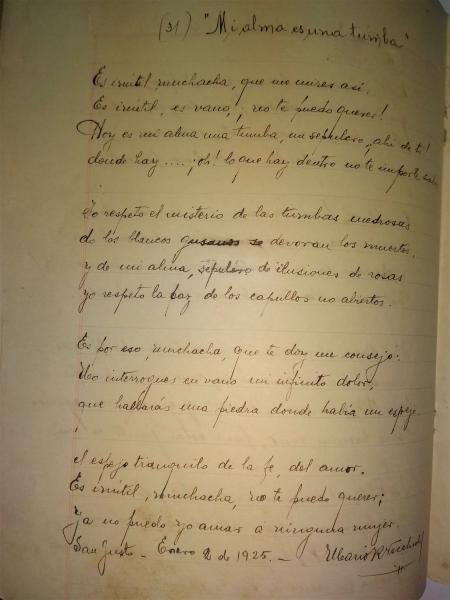 (31) "Mi alma es una tumba"
Es inútil muchacha, que me mires así.
Es inútil, es vano, ¡no te puedo querer!
Hoy es mi alma una tumba, un sepulcro, ahi de ti!
donde hay .... ¡oh! lo que hay dentro no te importe
Yo respeto el misterio de las tumbas medrosas
do los blancos gusanos se devoran los muertos,
y de mi alma, sepulcro de ilusiones de rosas
yo respeto la paz de los capullos no abiertos.
Es por eso, muchacha, que te doy un consejo:
No interrogues en vano mi infinito dolor,
que hallarás una piedra donde había un espejo
el espejo tranquilo de la fe, del amor.
Es inútil, muchacha, no te puedo querer;
ya no puedo yo amar a ninguna mujer.
San Justo - Enero 2 de 1925. - Mario R.